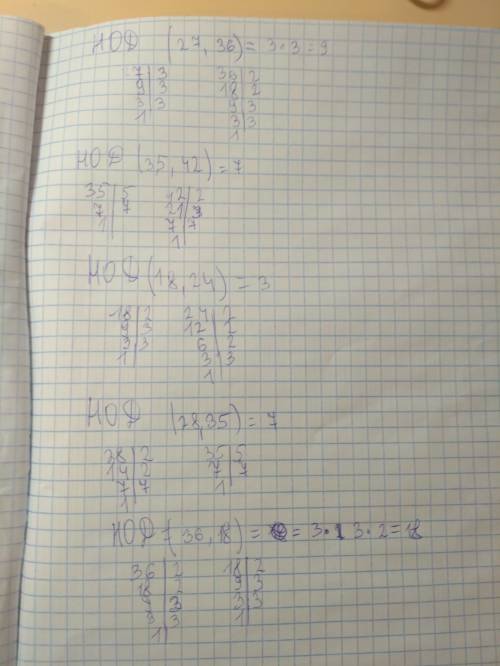 НОД (27, 36) = 3·3=9
27 | 3 36 | 2
9 | 3 18 | 2
3 | 3 9 | 3
1 3 | 3
1
НОД (35, 42) = 7
35 | 5 42 | 2
7 | 7 21 | 3
1 7 | 7
1
НОД (18, 24) = 3
18 | 2 24 | 2
9 | 3 12 | 2
3 | 3 6 | 2
1 3 | 3
1
НОД (28,35) = 7
28 | 2 35 | 5
14 | 2 7 | 7
7 | 7 1
1
НОД (36, 18) = = 3· 3·2=18
36 | 2 18 | 2
18 | 2 9 | 3
9 | 3 3 | 3
3 | 3 1
1